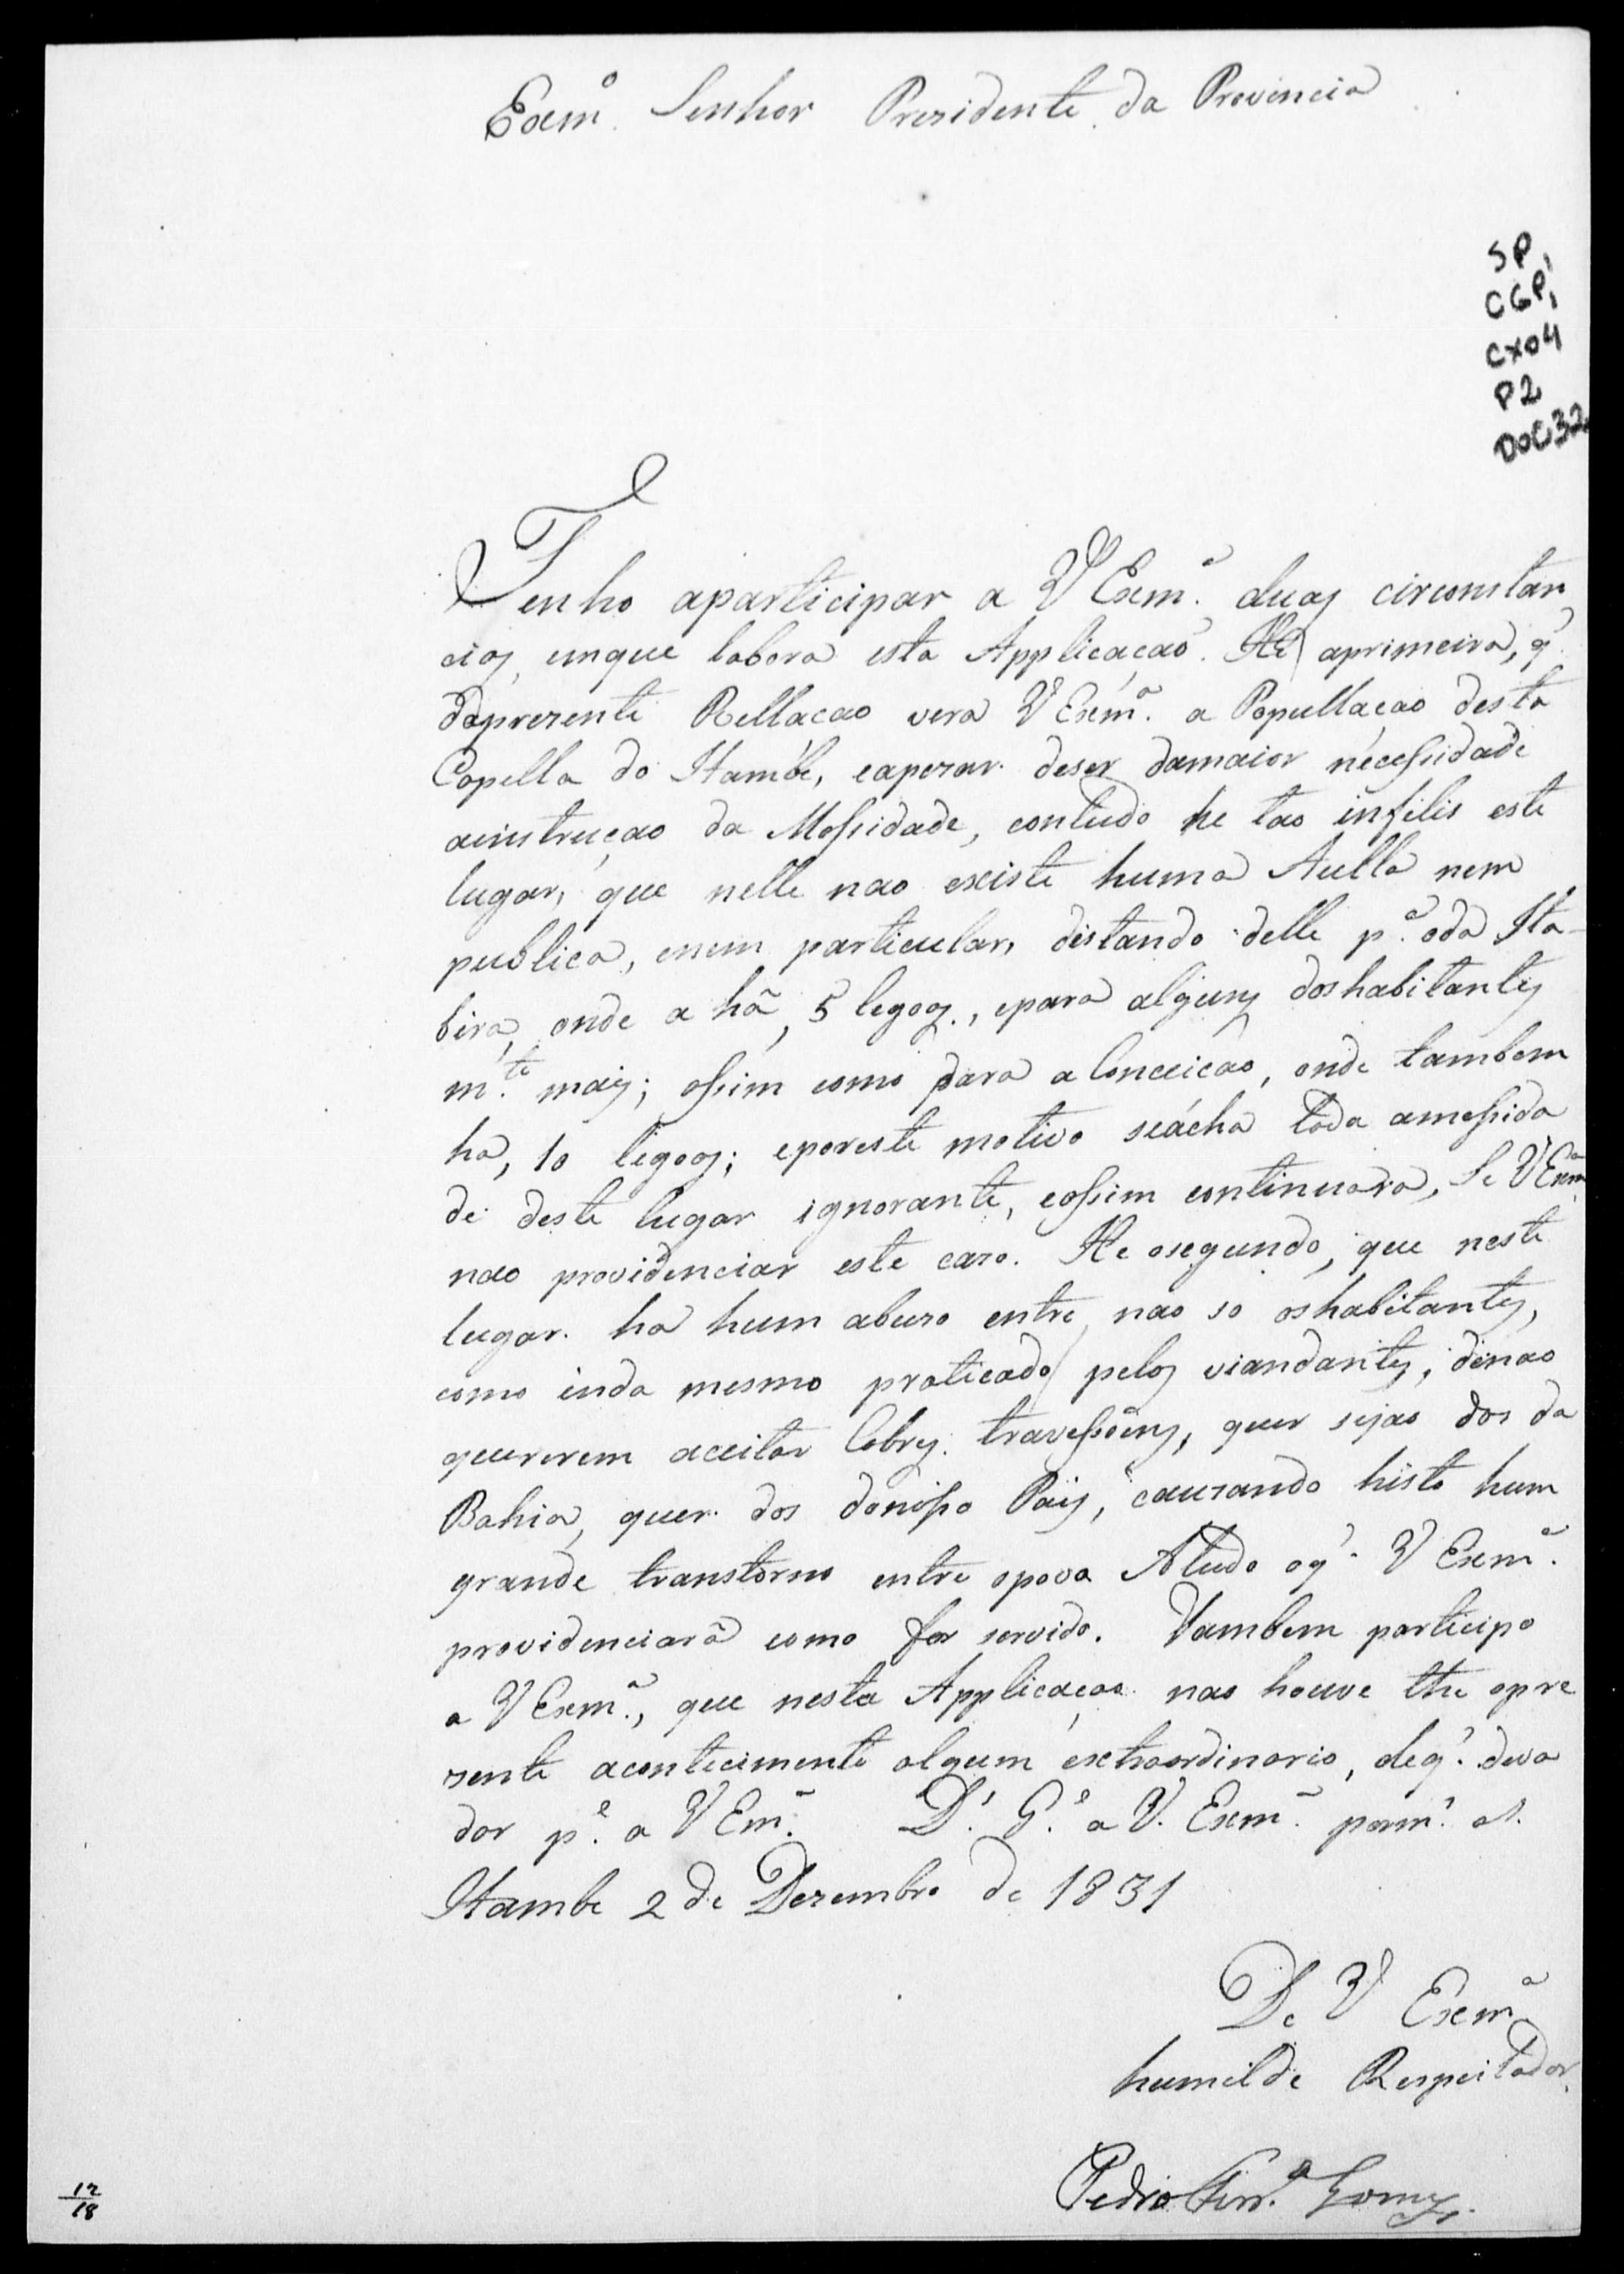 Exmº. Senhor Prezidente da Provincia
SP,
CGP,
CX04
P2
DOC32
Tenho aparticipar a V Exmª. duas circonstan
cias, emque labora esta Applicaçaõ. He aprimeira, q'.
daprezente Rellacao vera V Exmª. a Popullaçao desta
Capella do Itambé, eapezar deser damaior necessidade
ainstruçao da Mossidade, contudo he tao infelis este
lugar, que nelle nao existe huma Aulla nem
publica, enem particular, distando delle pª. oda Ita-
bira, onde a hã, 5 legoas., epara alguns doshabitantes
m.te mais; assim como para aConceicao, onde tambem
ha, 10 legoas; eporeste motivo seácha toda amossida
de deste lugar ignorante, eassim continuara, Se VExmª
nao providenciar este cazo. He osegundo, que neste
lugar ha hum abuzo entre nao so oshabitantes,
como inda mesmo praticado pelos viandantes, denao
quererem aceitar Cobres travessoens, quer sejao dos da
Bahia, quer dos donosso Pais, cauzando histo hum
grande transtorno entre opovo Atudo oq'. V Exmª.
providenciarã como for servido. Tambem participo
a V Exmª., que nesta Applicaçao nao houve the opre
zente acontecimente algum extraordinario, deq'. deva
dar pe. a V Emª. D.s G.e a V. Exmª. porm.s a.s
Itambe 2 de Dezembro de 1831
De V Exmª
humilde Respeitador
Pedro Ferr.ª Gomes
12
18